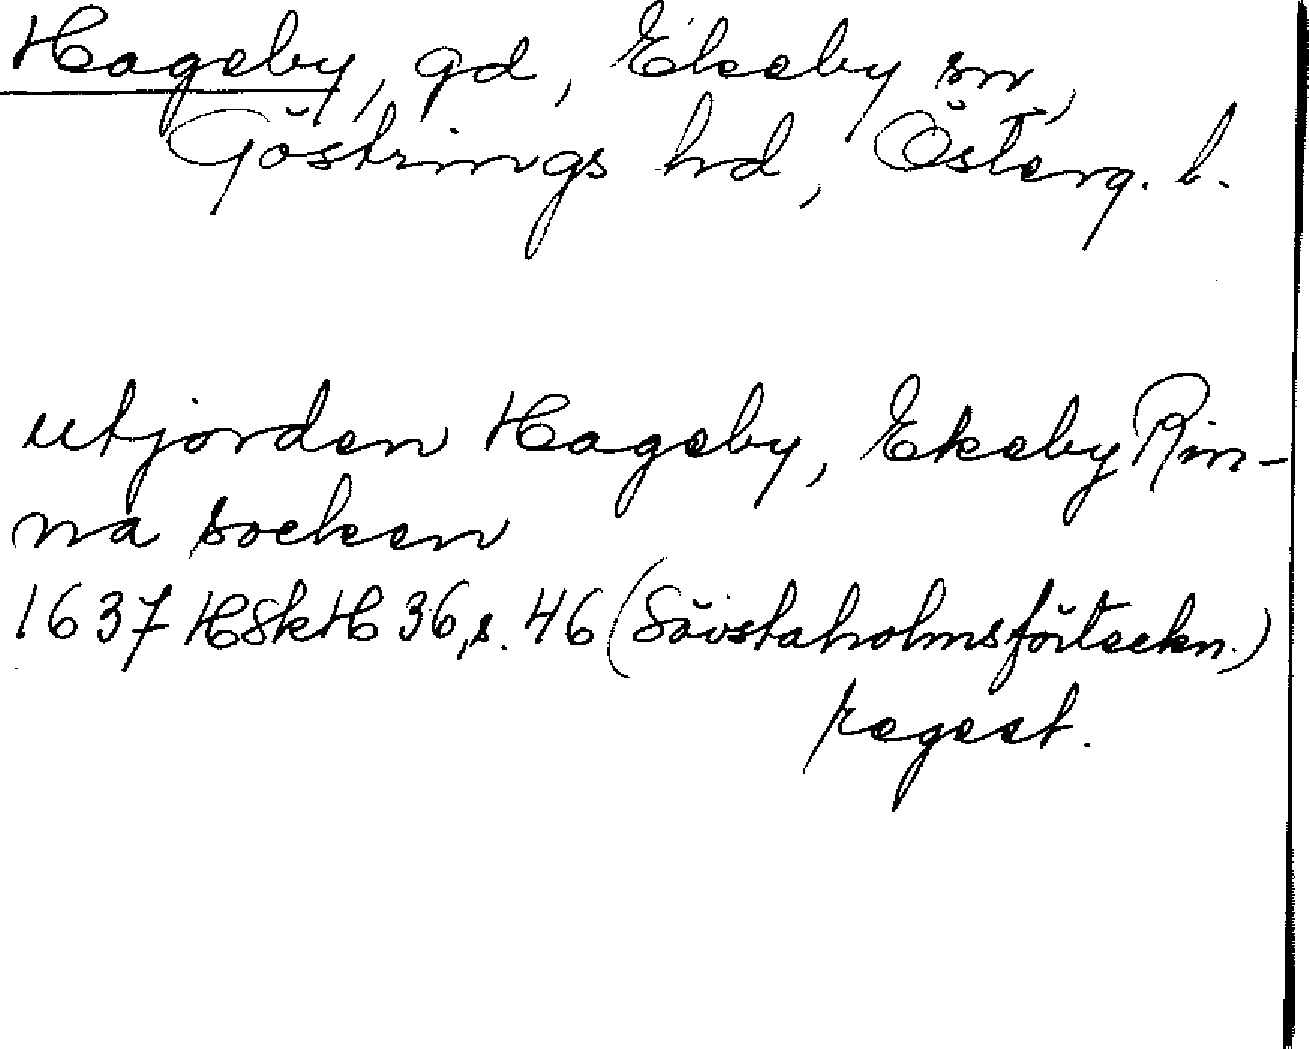 Hageby, gd, Ekeby sn,
Göstrings hd, Österg. l.
utjorden Hageby, Ekeby Rin-
na socken
1637 HSkH 36, s. 46 (Sävstaholmsförteckn.)
regest.